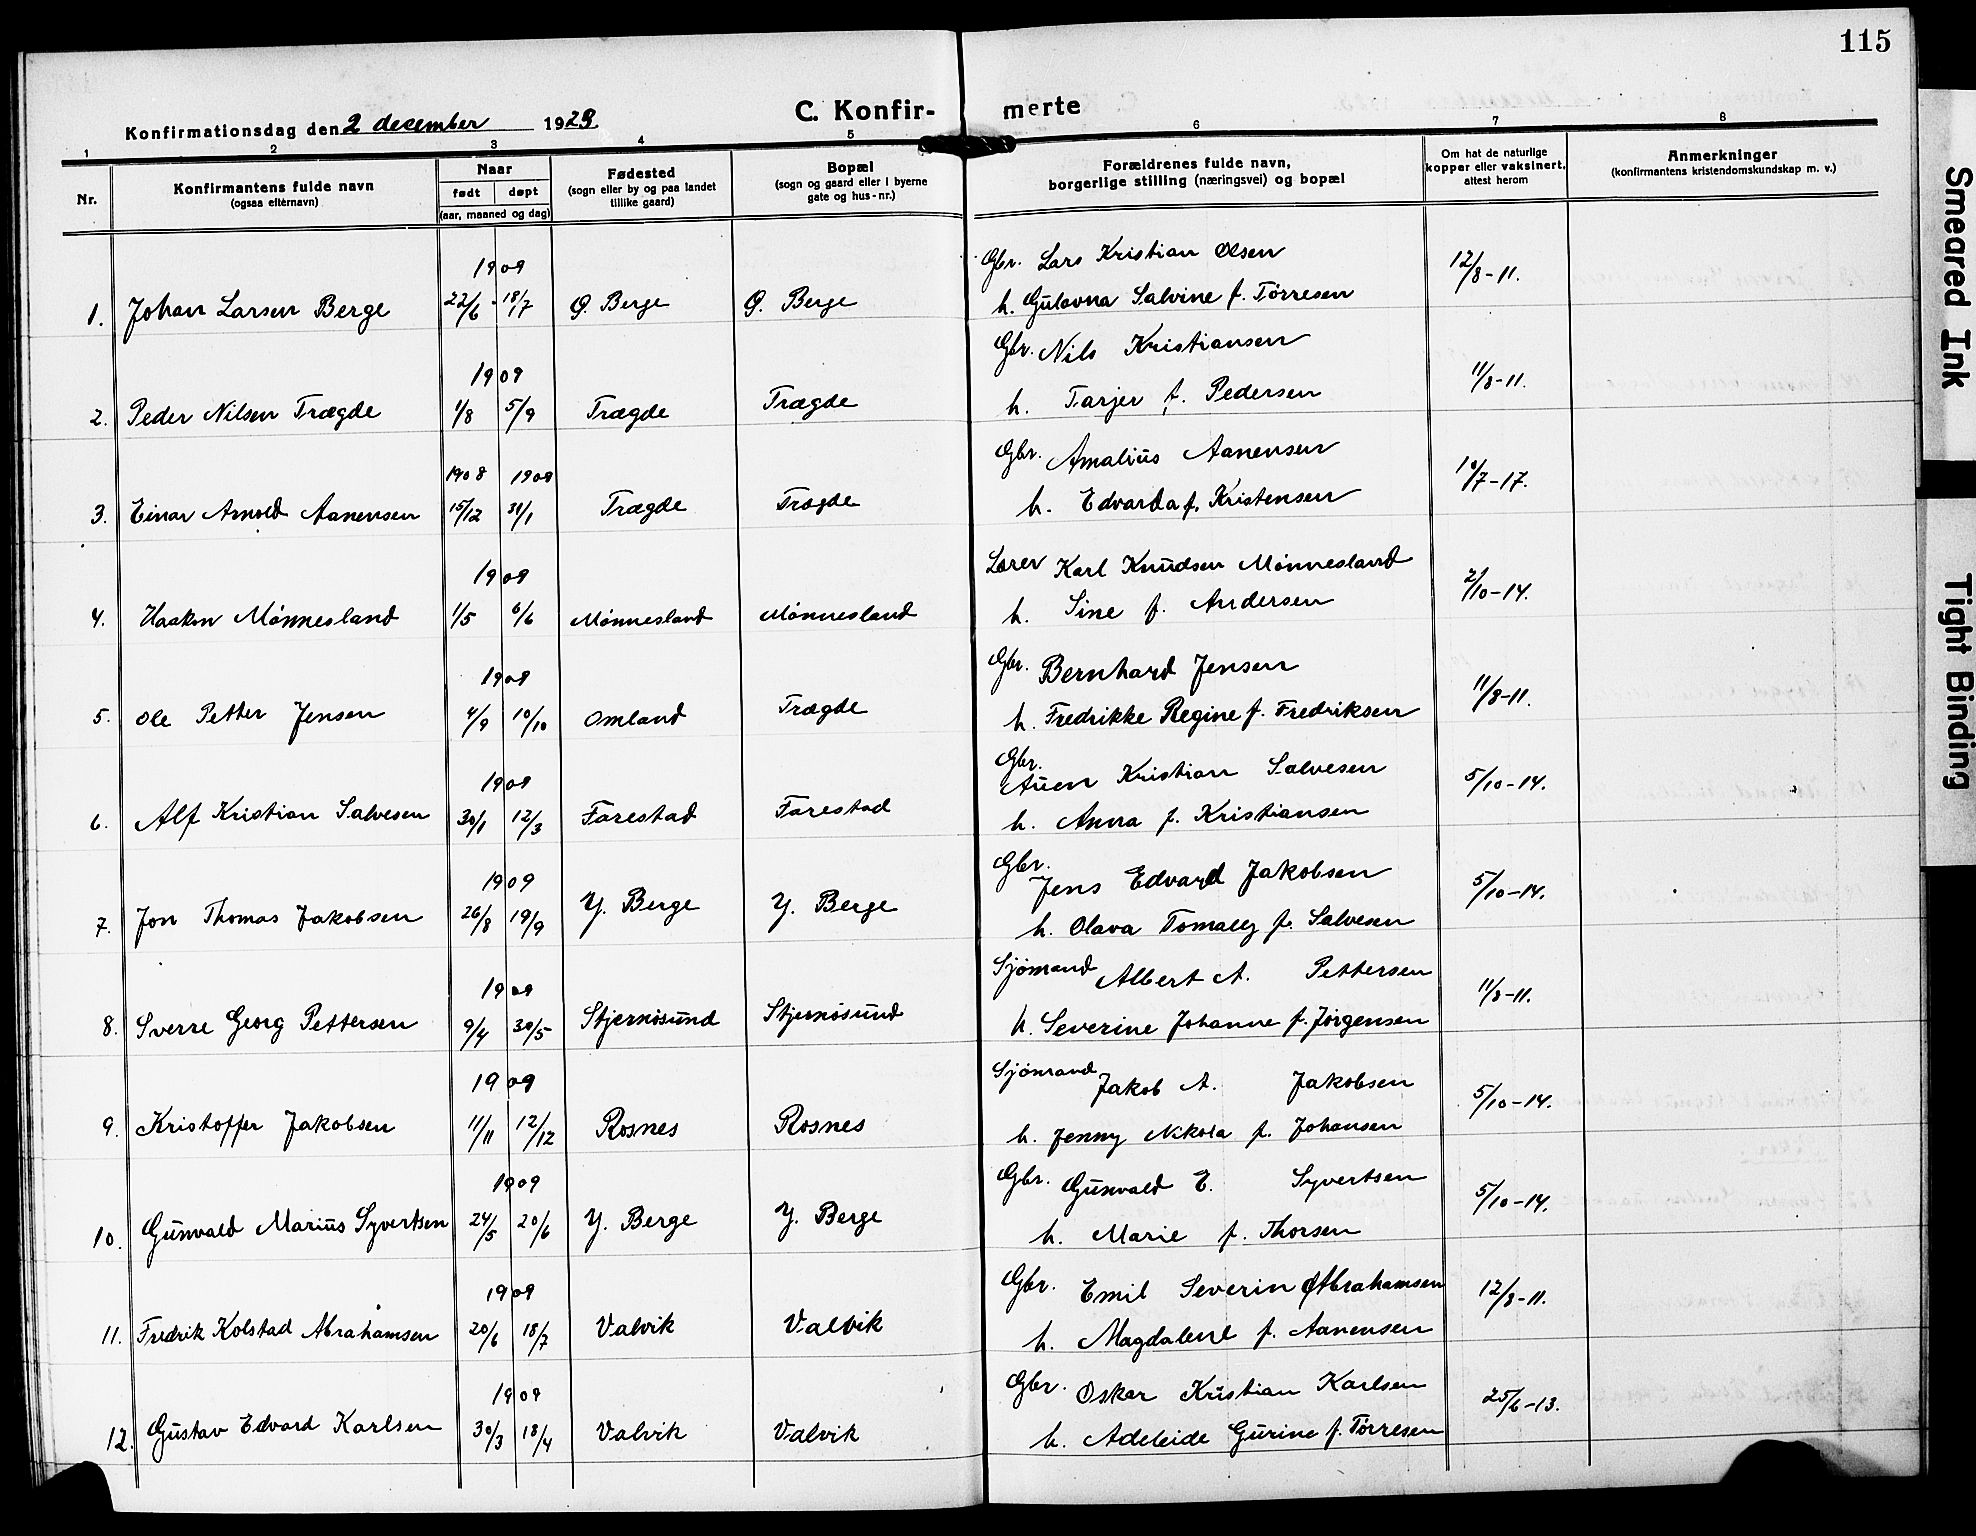 115
C. Konfir- merte
Konfirmationsdag den 2 december 1923
1 2 3 4 5 6 7 8
Nr.
Konfirmantens fulde navn
(ogsaa efternavn)
Naar
født døpt
(aar, maaned og dag)
Fødested
(sogn eller by og paa landet
tillike gaard)
Bopæl
(sogn og gaard eller i byerne
gate og hus-nr.)
Forældrenes fulde navn,
borgerlige stilling (næringsvei) og bopæl
Om hat de naturlige
kopper eller vaksinert,
attest herom
Anmerkninger
(konfirmantens kristendomskundskap m. v.)
1909 Gbr. Lars Kristian Olsen 12/8-11.
1. Johan Larsen Berge 22/6 - 18/7 Ø. Berge Ø. Berge h. Gulovna Salvine f. Tørresen
1909 Gbr. Nils Kristiansen 11/8-11.
2. Peder Nilsen Trægde 1/8 5/9 Trægde Trægde h. Tarjer f. Pedersen
1908 1909 Gbr. Amalius Aanensen 10/7-17.
3. Einar Arnold Aanensen 15/12 31/1 Trægde Trægde h. Edvarda f. Kristensen
1909 Lærer Karl Knudsen Mønnesland 2/10-14.
4. Haakon Mønnesland 1/5 6/6 Mønnesland Mønnesland h. Sine f. Andersen
1909 Gbr. Bernhard Jensen 11/8-11.
5. Ole Petter Jensen 4/9 10/10 Omland Trægde h. Fredrikke Regine f. Fredriksen
1909 Gbr. Auen Kristian Salvesen 5/10-14.
6. Alf Kristian Salvesen 30/1 12/3 Farestad Farestad h. Anna f. Kristiansen
1909 Gbr. Jens Edvard Jakobsen 5/10-14.
7. Jon Thomas Jakobsen 26/8 19/9 Y. Berge Y. Berge h. Olava Tomaley f. Salvesen
1909 Sjömand Albert A. Pettersen 11/8-11.
8. Sverre Georg Pettersen 9/4 30/5 Stjernøsund Stjernøsund h. Severine Johanne f. Jørgensen
1909 Sjömand Jakob A. Jakobsen 5/10-14.
9. Kristoffer Jakobsen 11/11 12/12 Rosnes Rosnes h. Jenny Nikola f. Johansen
1909 Gbr. Gunvald E. Syvertsen 5/10-14.
10. Gunvald Marius Syvertsen 24/5 20/6 Y. Berge Y. Berge h. Marie f. Thorsen
1909 Gbr. Emil Severin Abrahamsen 12/8-11.
11. Fredrik Kolstad Abrahamsen 20/6 18/7 Valvik Valvik h. Magdalene f. Aanensen
1909 Gbr. Oskar Kristian Karlsen 25/6-13.
12. Gustav Edvard Karlsen 30/3 18/4 Valvik Valvik h. Adeleide Gurine f. Tørresen
Smeared Ink
Tight Binding